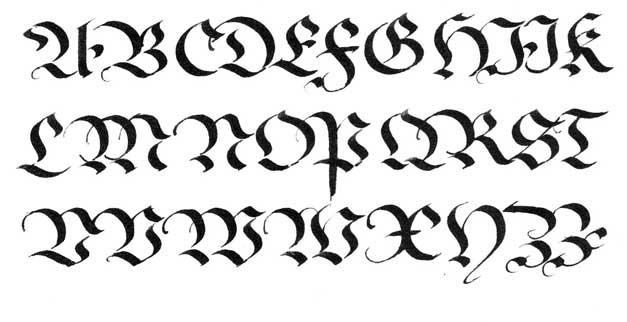 A B C D E F G H I J K
L M N O P Q R S T
U V W W X Y Z Z